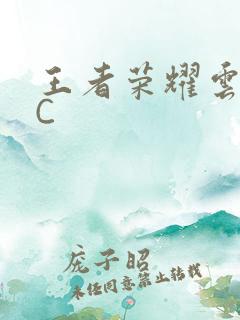 王者荣耀雲
C
庞子昭
未经同意禁止转载